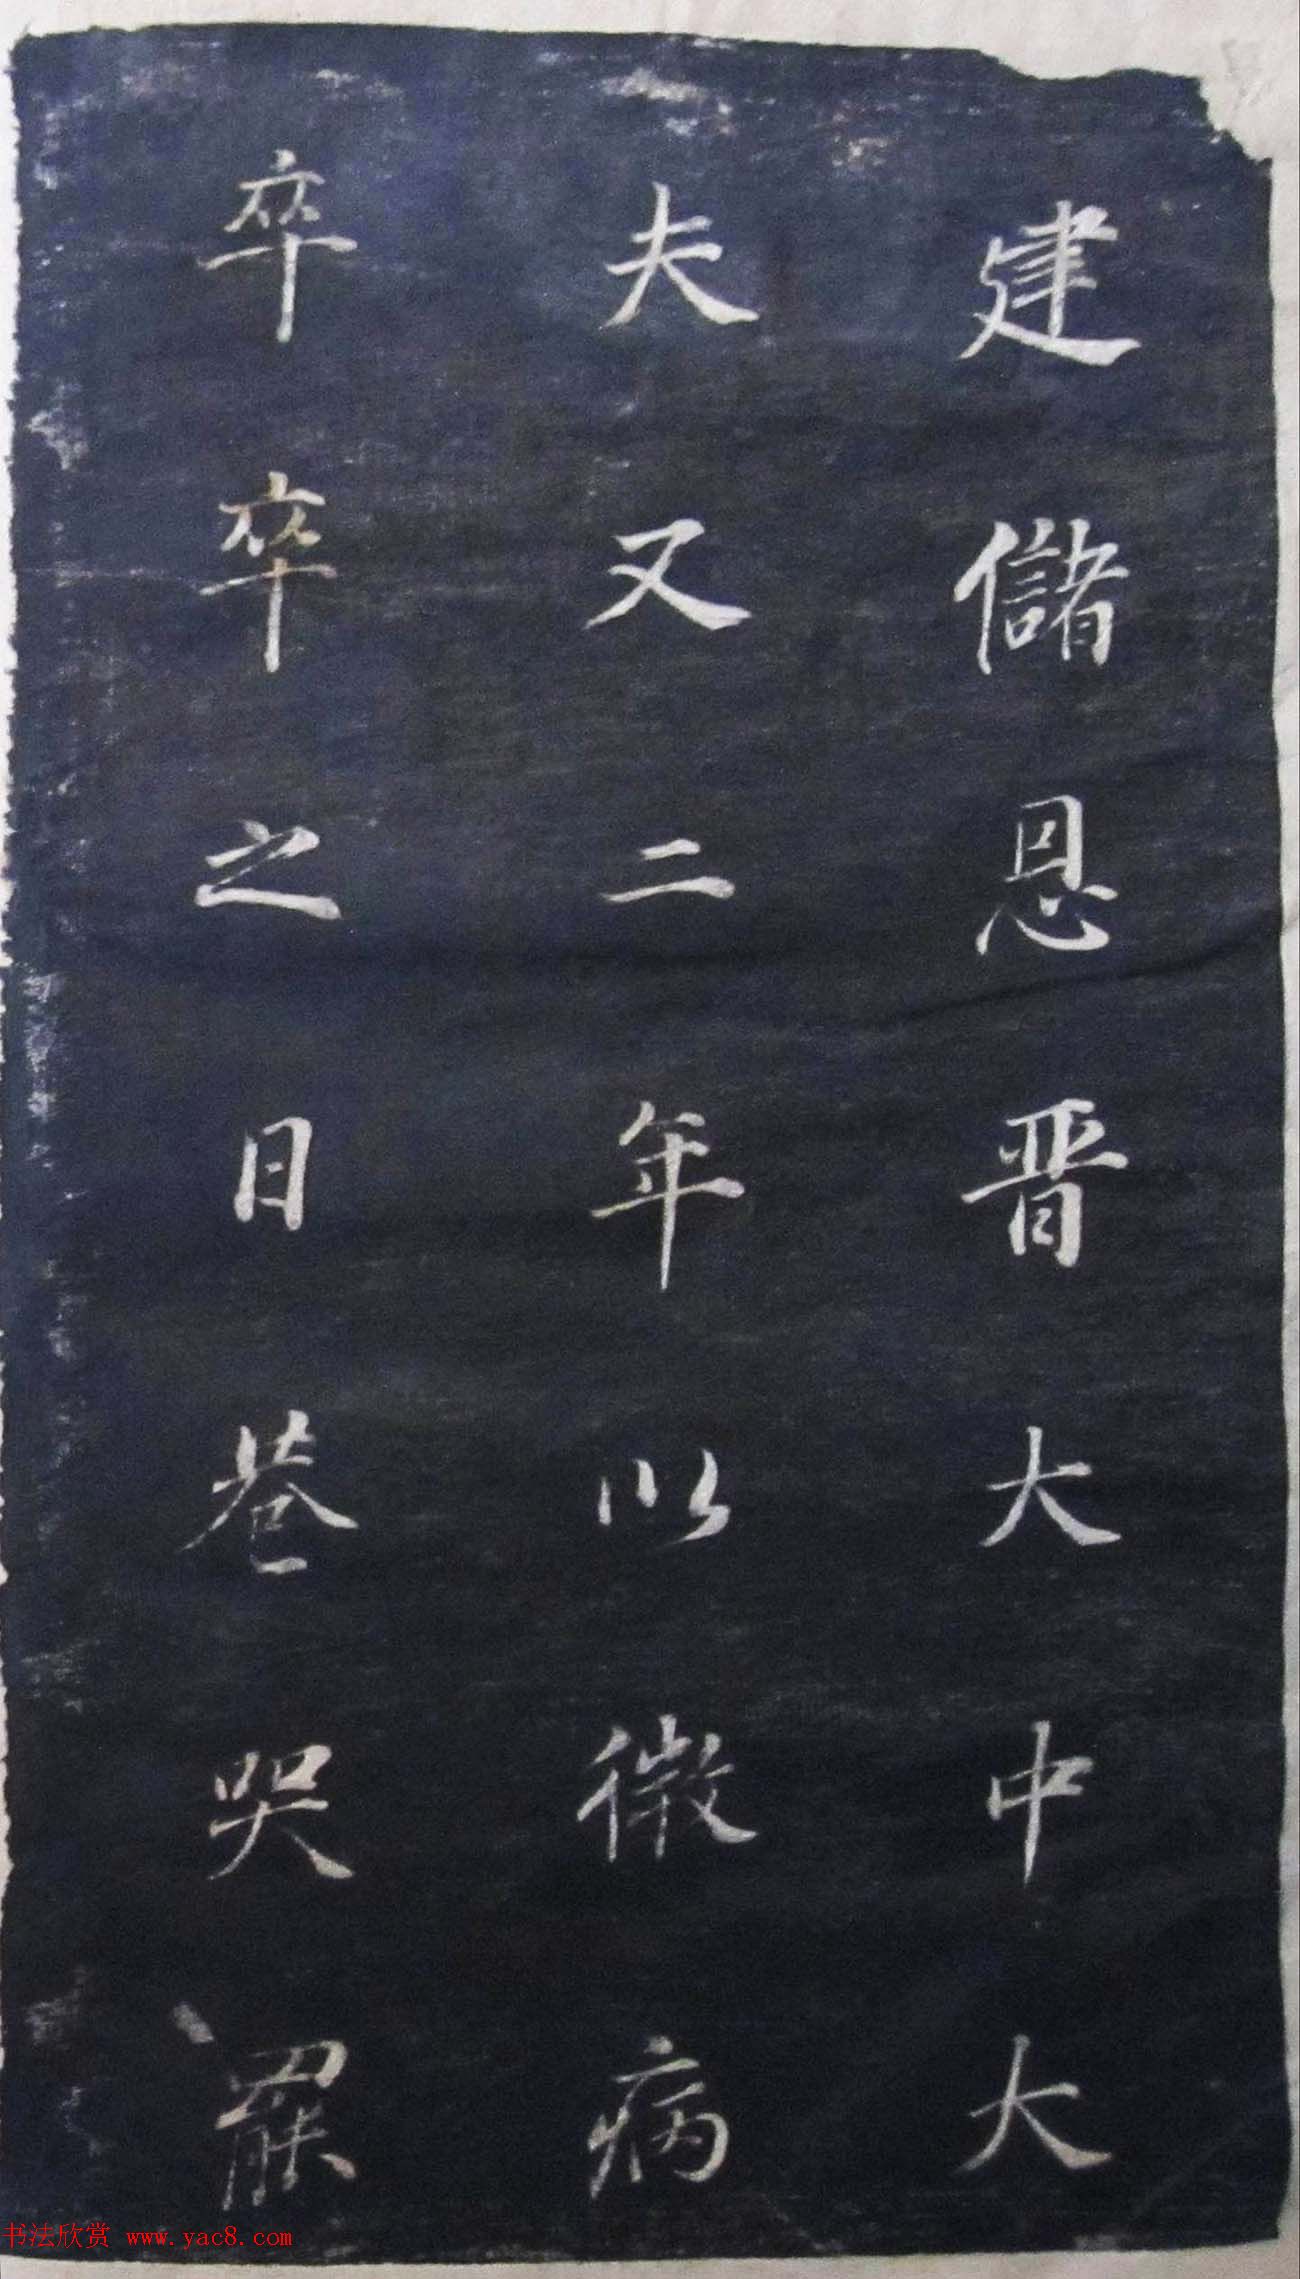 建儲恩晋大中大
夫又二年以微病
卒卒之日巷哭罷
书法欣赏 www.yac8.com